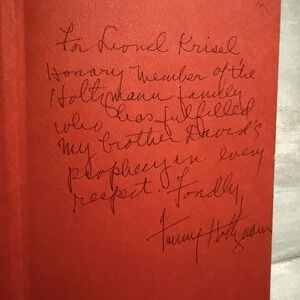 For Lionel Krisel
Honary member of the
Holtzmann family
who has fulfilled
my brother David's
prophecy in every
respect. Fondly,
Fanny Holtzmann